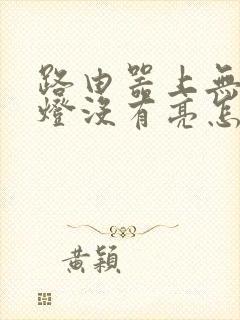 路由器上無
燈沒有亮怎
黃穎